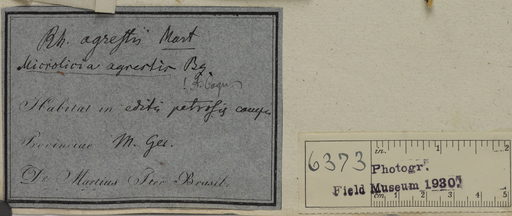 Rh. agrestis Mart
Microlicia agrestis Bg
Habitat in editis petrosis campis
Provinciae M. Ger.
Dr Martius Iter Brasil.
6373
in. 1 2
Photogr.
Field Museum 1930
cm 1 2 3 4 5